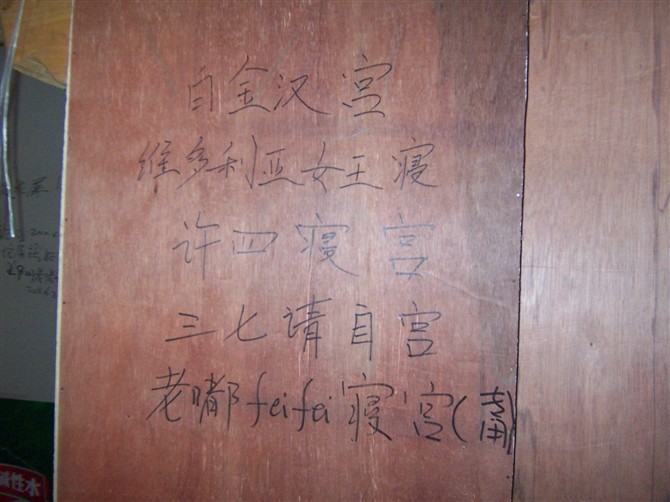 白金汉宫
维多利亚女王寝
许四寝宫
三七请自宫
老嘟feifei寝宫(南)
碱性水